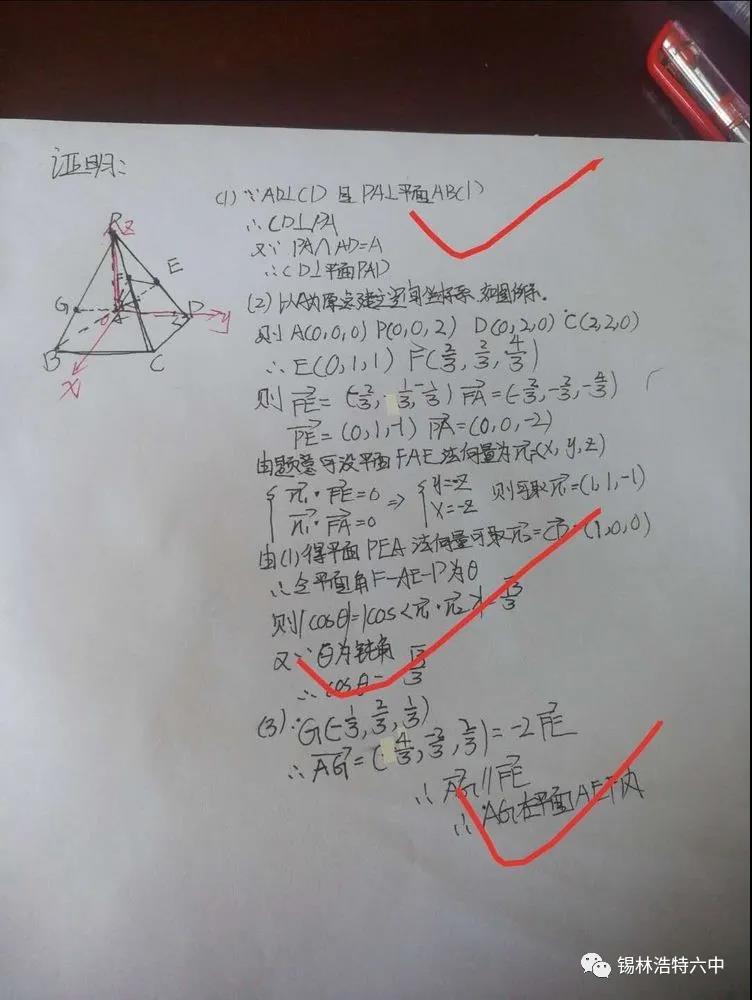 证明:
(1) ∵AD⊥CD 且 PA⊥平面ABCD
∴CD⊥PA
又∵ PA∩AD=A
∴CD⊥平面PAD
(2) 以A为原点建立空间坐标系,如图所示.
则 A(0,0,0) P(0,0,2) D(0,2,0) C(2,2,0)
∴E(0,1,1) F(2/3, 2/3, 4/3)
则 FE=(-2/3, 1/3, -1/3) FA=(-2/3, -2/3, -4/3)
PE=(0,1,-1) PA=(0,0,-2)
由题意可设平面FAE法向量为n₁=(x,y,z)
{ n₁·FE=0 ⇒ { y=-z 则可取n₁=(1,1,-1)
n₁·FA=0 x=-z
由(1)得平面PEA法向量可取n₂=CD=(1,0,0)
∴令平面角F-AE-P为θ
则|cosθ|=|cos<n₁·n₂>|=√3/3
又∵θ为钝角
∴cosθ=√3/3
(3)∵G(-1/3, 2/3, 1/3)
∴AG=(4/3, -2/3, 2/3)=-2FE
∴AG∥FE
∴AG在平面AEF内
P
Z
E
G
A
D
y
B
C
X
锡林浩特六中